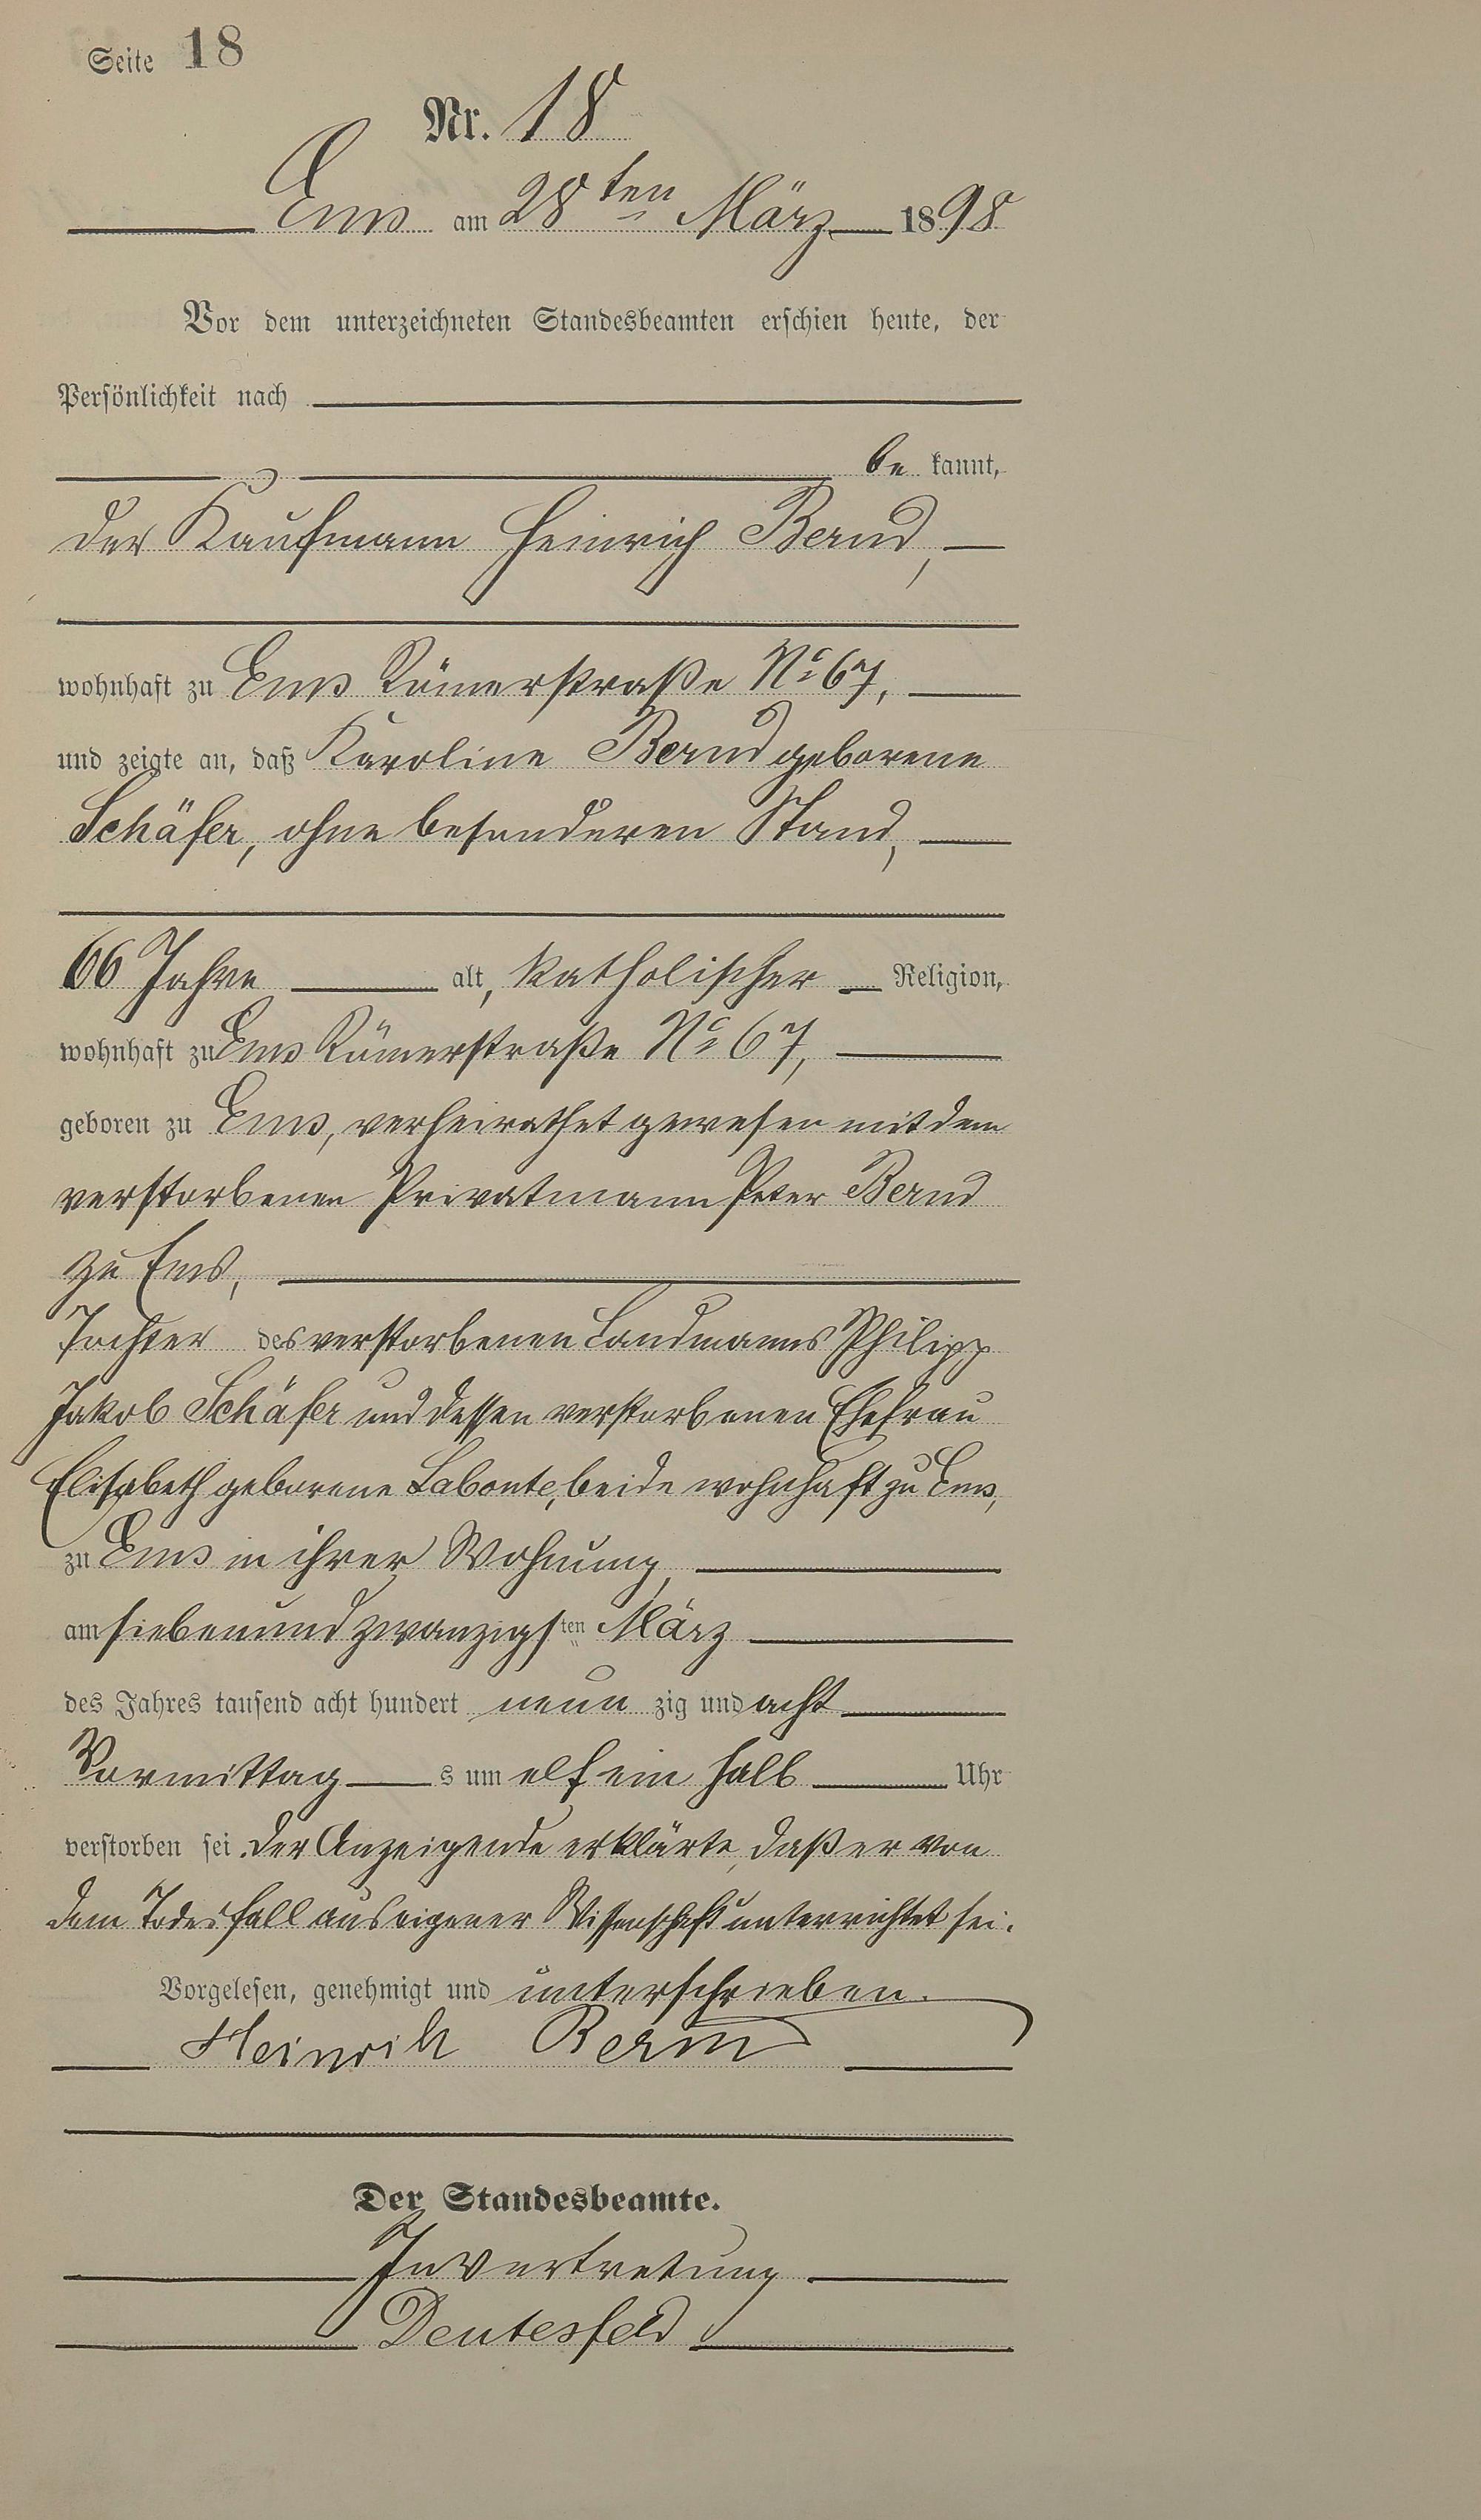 Seite 18
Nr. 18
Ems am 28ten März 1898
Vor dem unterzeichneten Standesbeamten erschien heute, der
Persönlichkeit nach
be kannt,
der Kaufmann Heinrich Bernd,
wohnhaft zu Ems Römerstraße No 67,
und zeigte an, daß Karoline Bernd geborene
Schäfer, ohne besonderen Stand,
66 Jahre alt, katholischer Religion,
wohnhaft zu Ems Römerstraße No 67,
geboren zu Ems, verheirathet gewesen mit dem
verstorbenen Privatmann Peter Bernd
zu Ems,
Tochter des verstorbenen Landmanns Philipp
Jakob Schäfer und dessen verstorbenen Ehefrau
Elisabeth geborene Labonte, beide wohnhaft zu Ems,
zu Ems in ihrer Wohnung,
am siebenundzwanzigsten März
des Jahres tausend acht hundert neun zig und acht
Vormittag s um elf ein halb Uhr
verstorben sei. Der Anzeigende erklärte, daß er von
dem Todesfall aus eigener Wissenschaft unterrichtet sei.
Vorgelesen, genehmigt und unterschrieben.
Heinrich Bernd
Der Standesbeamte.
In Vertretung
Deutesfeld